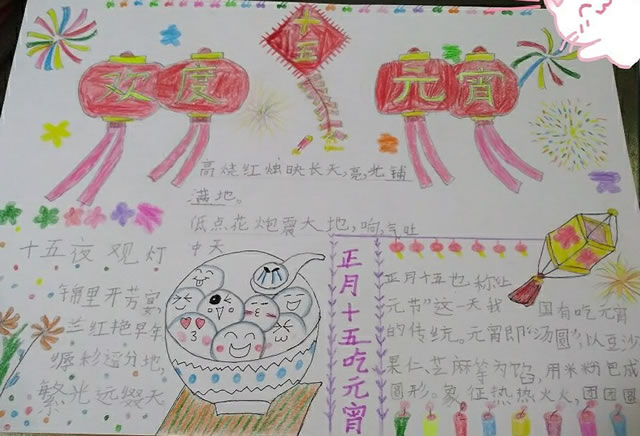 欢度
十五
元宵
高烧红烛映长天,亮,光铺
满地。
低点花炮震大地,响,气吐
中天
十五夜观灯
锦里开芳宴
兰红艳早年
缛彩遥分地,
繁光远缀天
正月十五吃元宵
正月十五也称上
元节"这一天我国有吃元宵
的传统。元宵即"汤圆",以豆沙
果仁、芝麻等为馅,用米粉包成
圆形。象征热热火火,团团圆